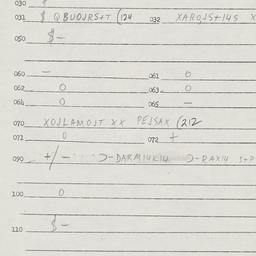 030
031 $ QBUOJRS+T (124 032 XARQJS+14S X
050 $-
060 - 061 0
062 0 063 0
064 0 065 -
070 XOJLAMOJT XX PEJSAX (212
071 0 072 +
090 +/- Ɔ-DARMI4KI4 Ɔ-RAXI4
100 0
110 $-